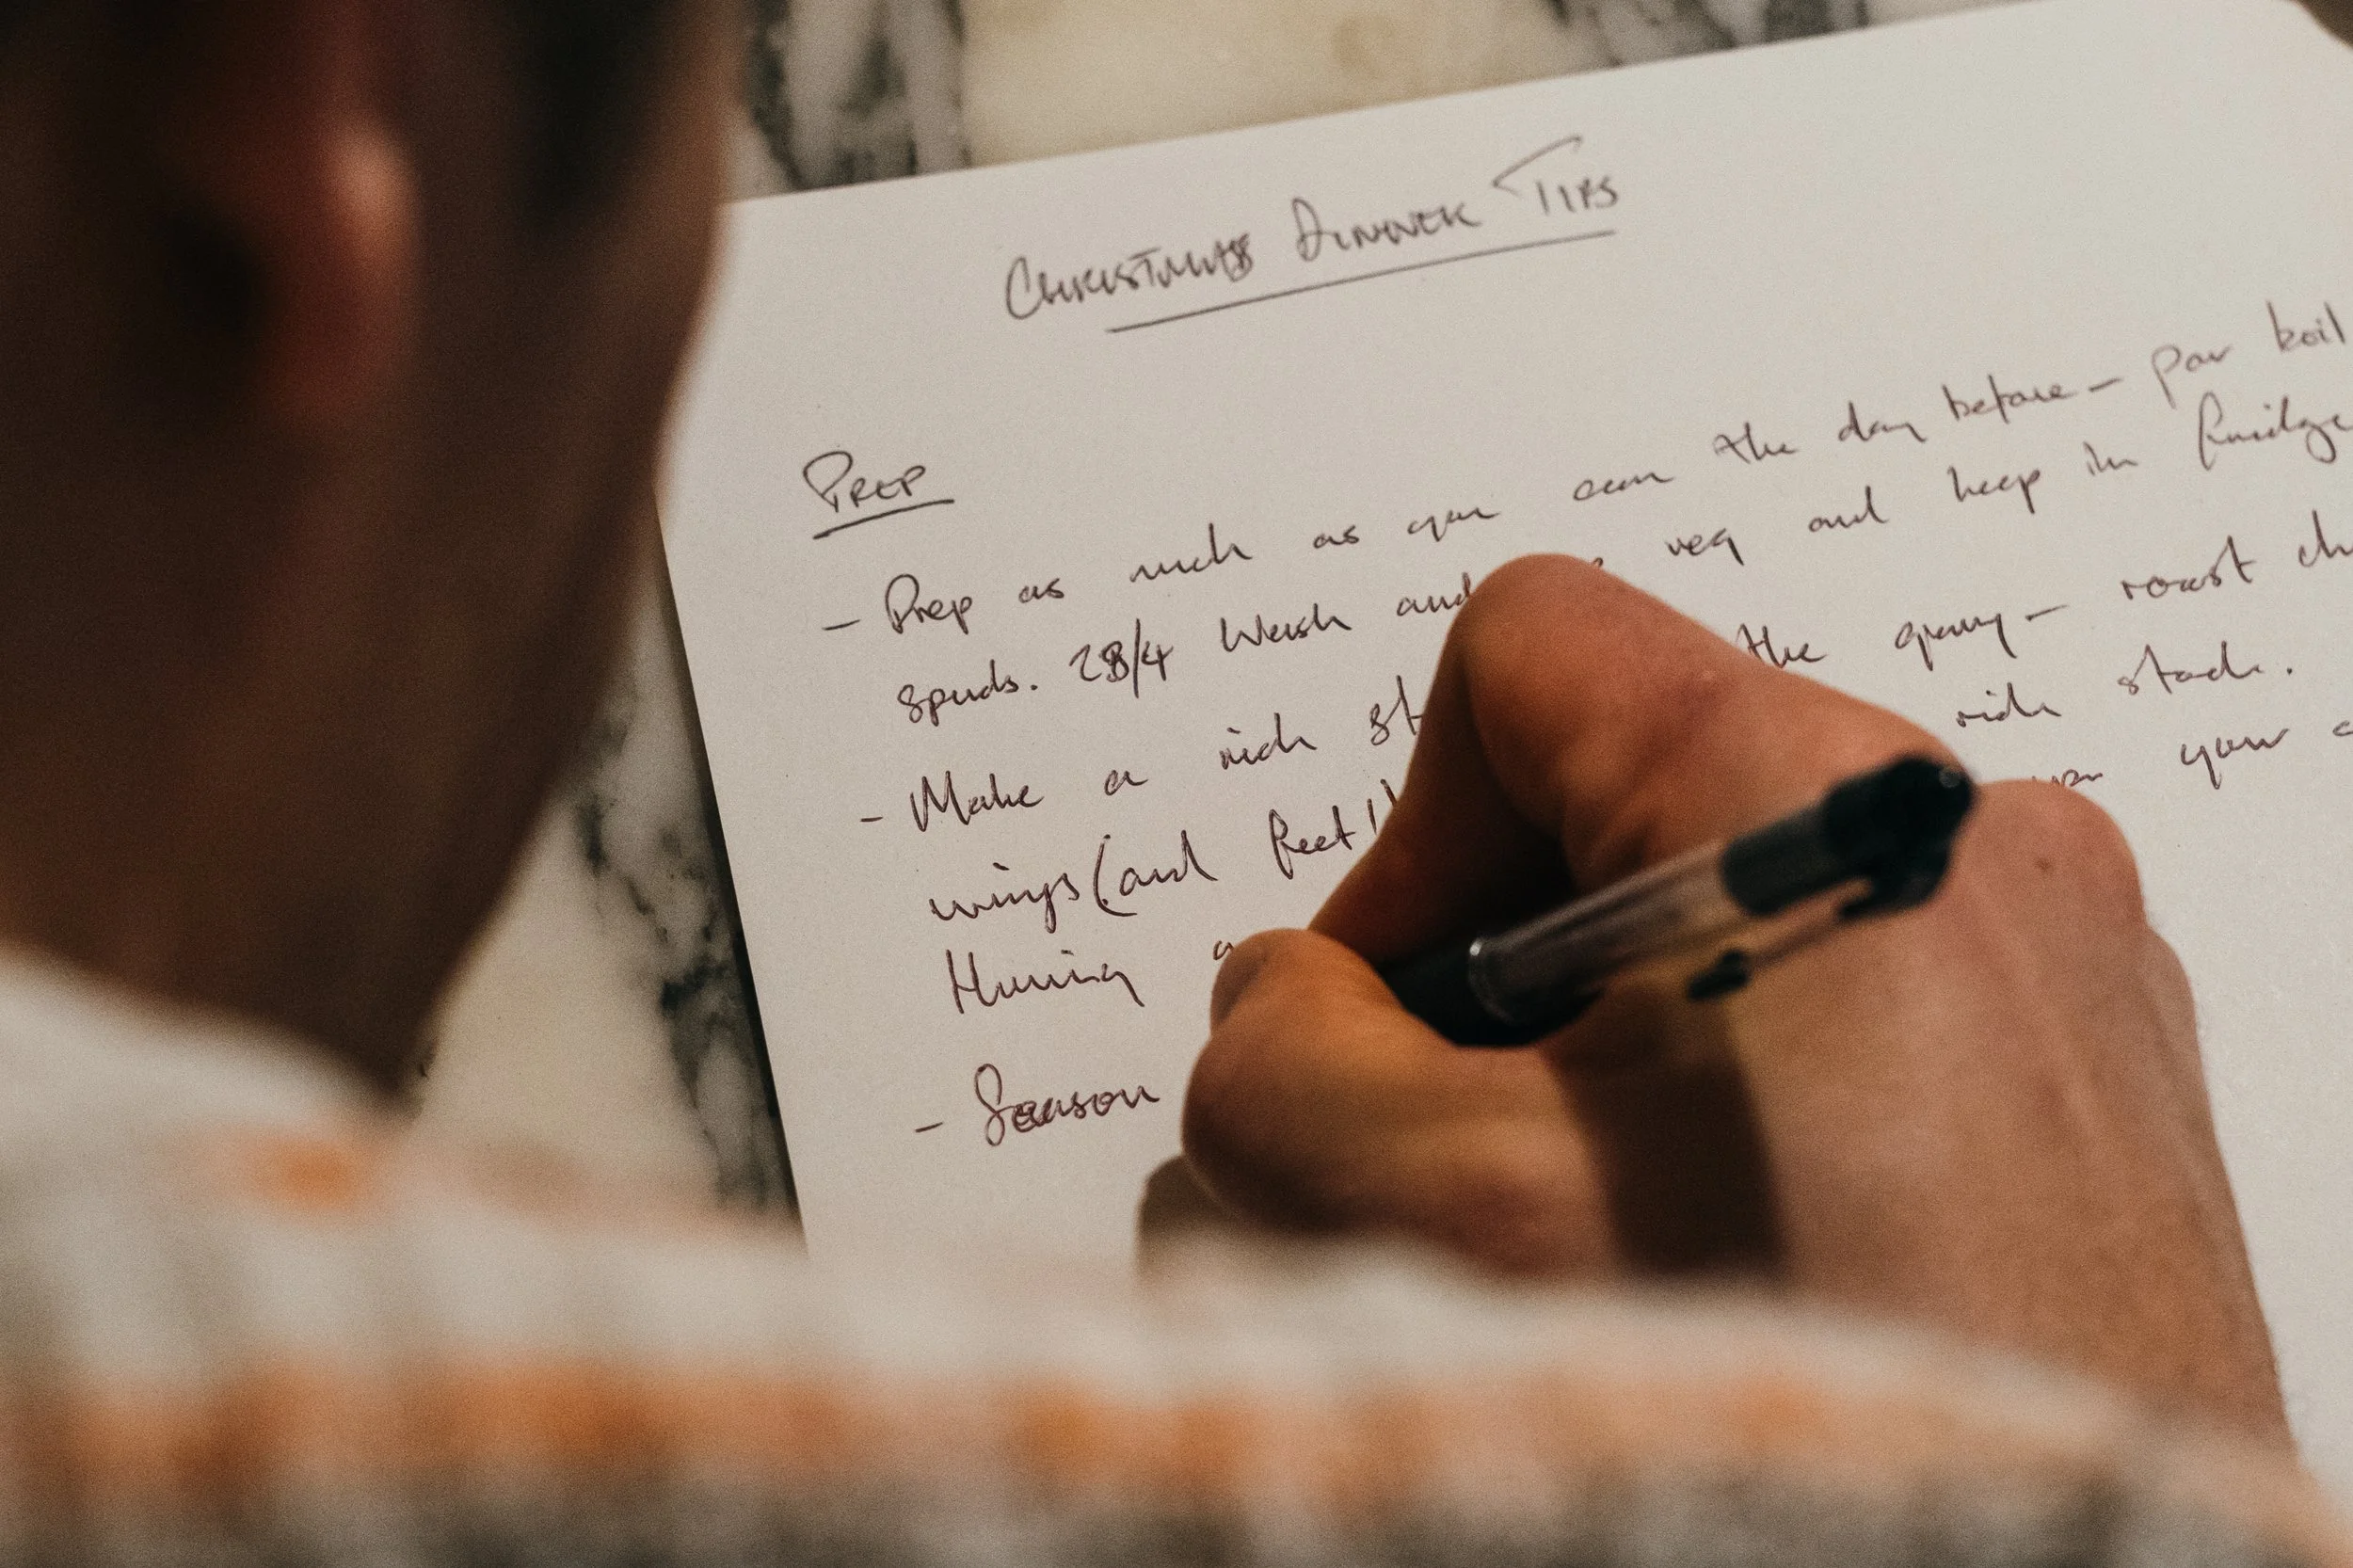 CHRISTMAS DINNER TIPS
PREP
- Prep as much as you can the day before - par boil
spuds. Wash and veg and keep in fridge
- Make a rich the gravy - roast
wings (and feet!) rich stock.
your
- Season